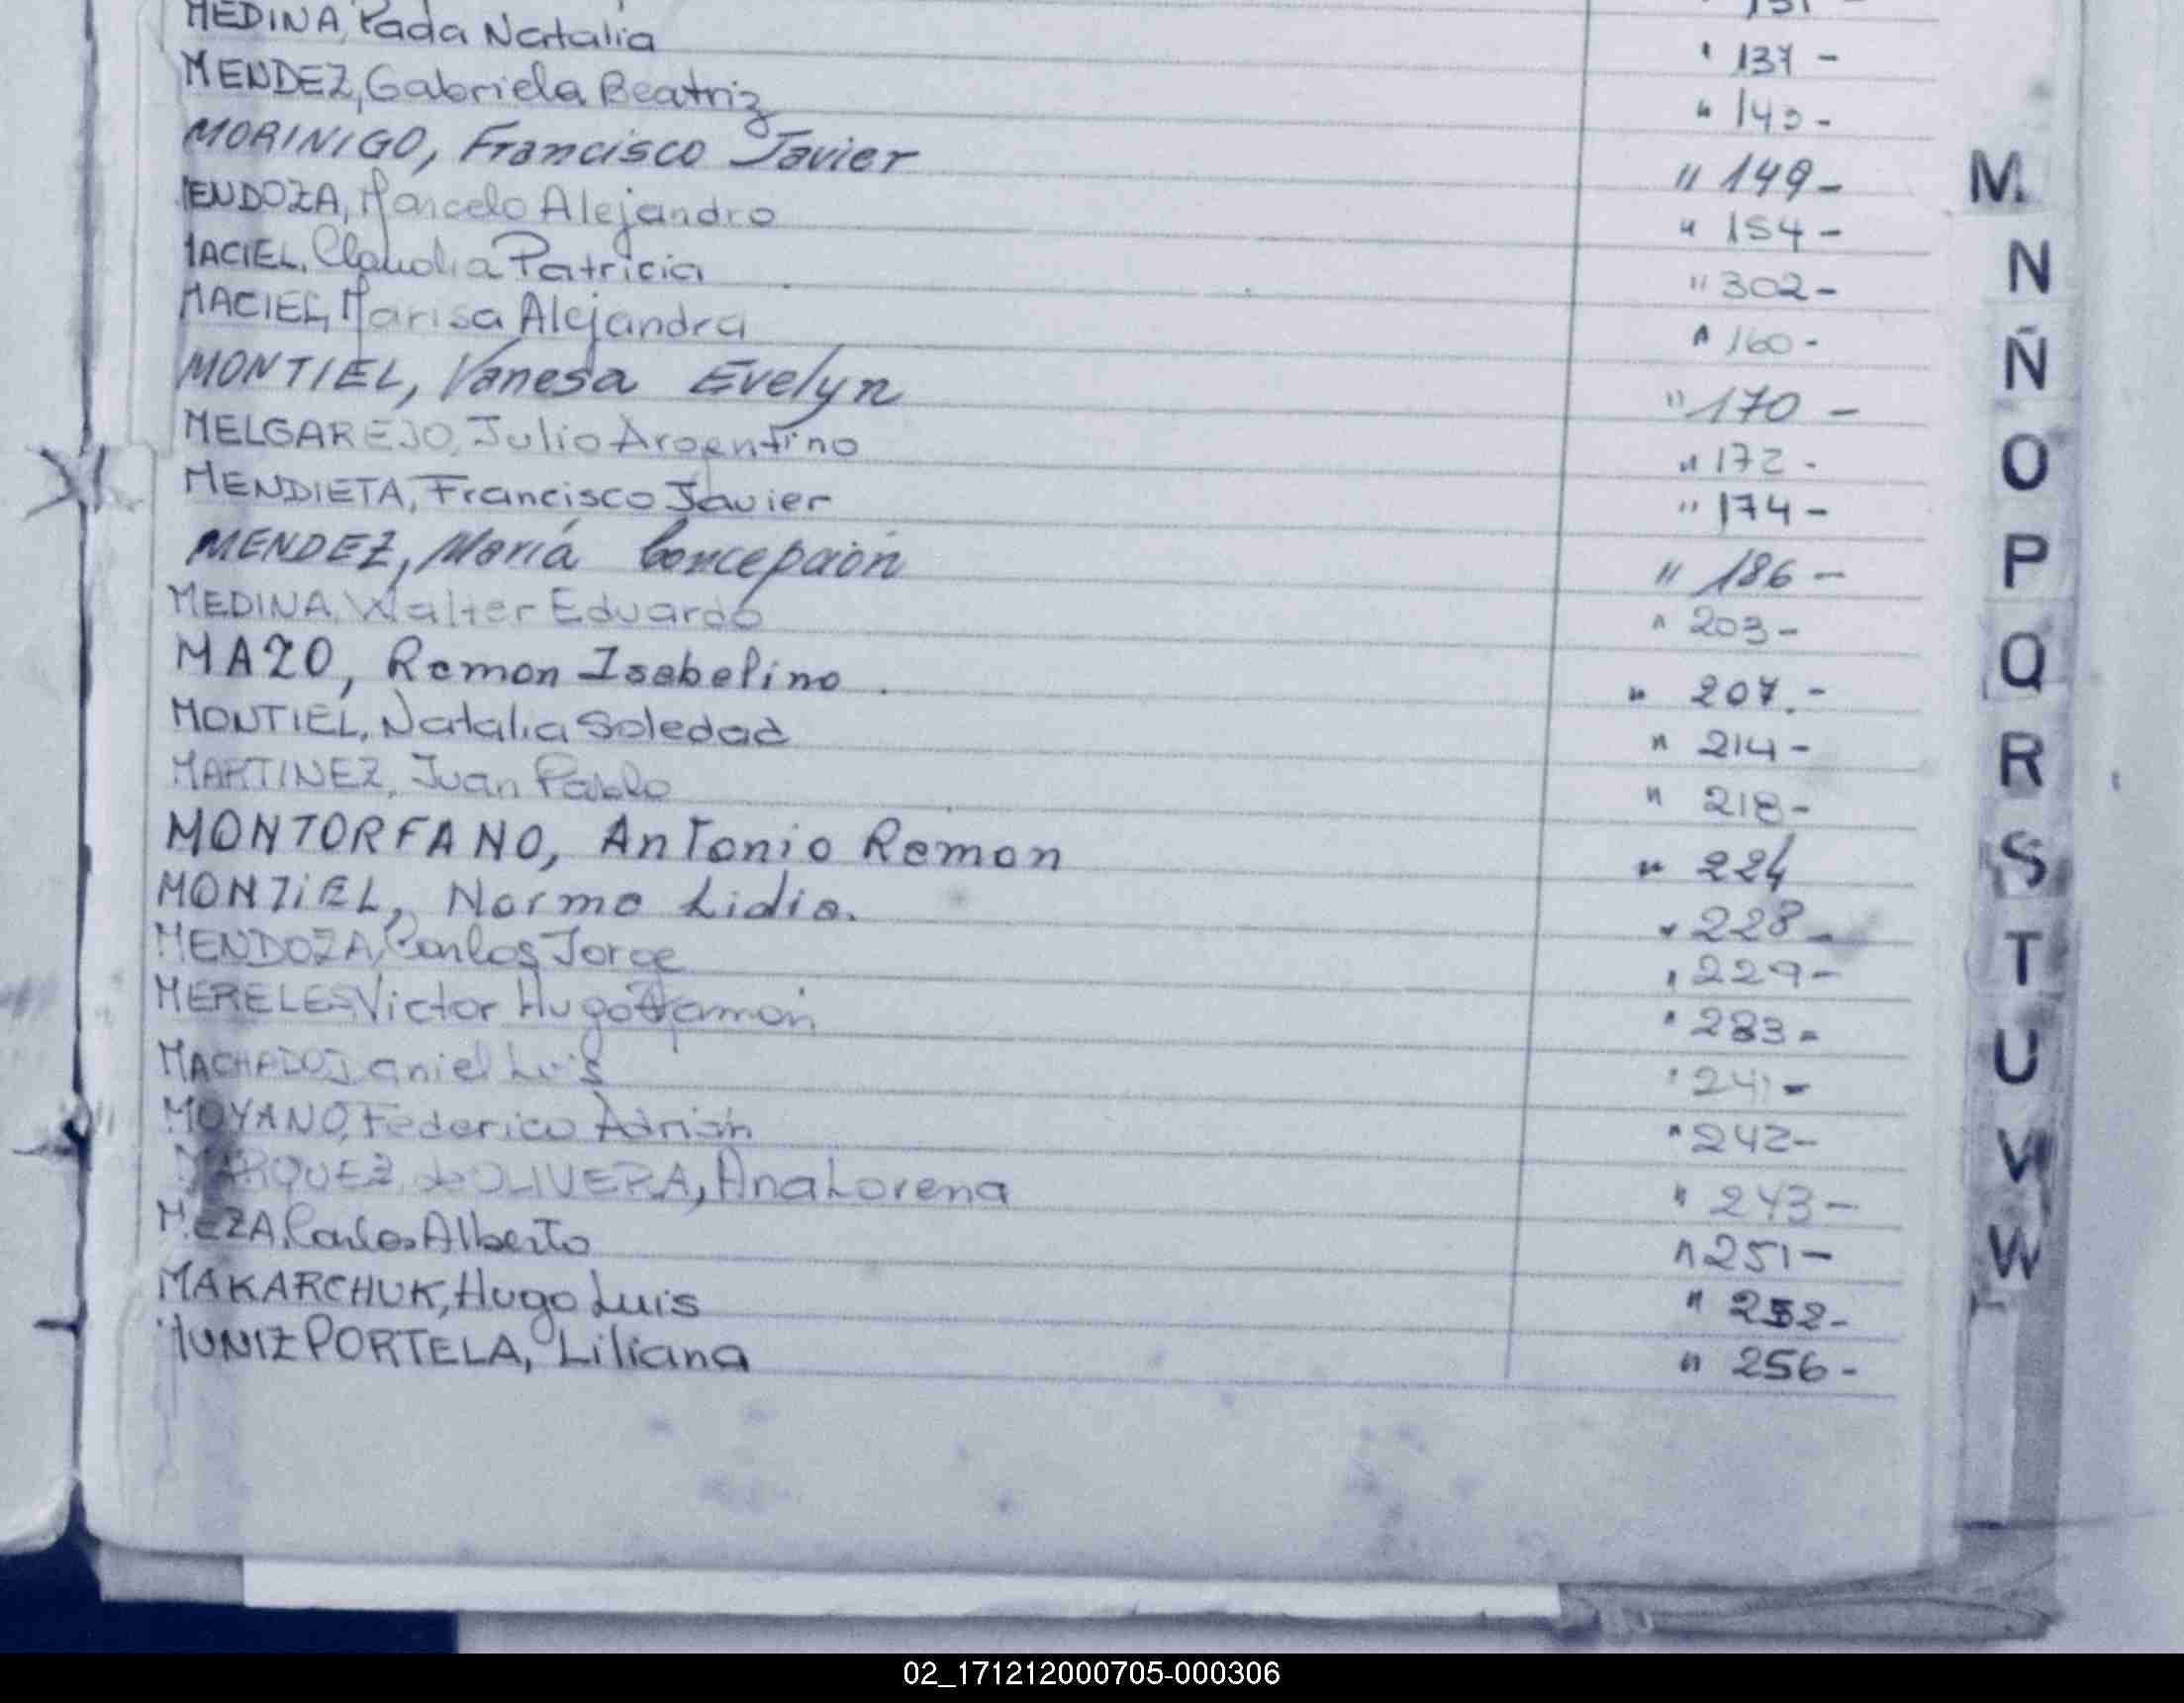 MEDINA, Natalia " 137 -
MENDEZ, Gabriela Beatriz " 143 -
MORINIGO, Francisco Javier " 149 -
MENDOZA, Marcelo Alejandro " 154 -
MACIEL, Claudia Patricia " 302 -
MACIEL, Marisa Alejandra " 160 -
MONTIEL, Vanesa Evelyn " 170 -
MELGAREJO, Julio Argentino " 172 -
MENDIETA, Francisco Javier " 174 -
MENDEZ, María Concepción " 186 -
MEDINA, Walter Eduardo " 203 -
MAZO, Ramon Isabelino . " 207.-
MONTIEL, Natalia Soledad " 214 -
MARTINEZ, Juan Pablo " 218 -
MONTORFANO, Antonio Ramon " 224
MONTIEL, Norma Lidia. " 228 -
MENDOZA, Carlos Jorge " 229 -
MERELES Victor Hugo Ramón " 233 -
MACHADO, Daniel Luis " 241 -
MOYANO, Federico Adrián " 242 -
MARQUEZ de OLIVERA, Ana Lorena " 243 -
MEZA, Carlos Alberto " 251 -
MAKARCHUK, Hugo Luis " 252 -
MUNIZ PORTELA, Liliana " 256 -
M
N
Ñ
O
P
Q
R
S
T
U
V
W
02_171212000705-000306